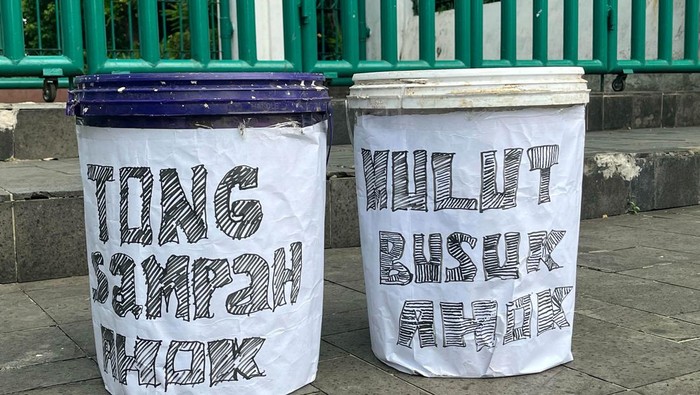 TONG
SAMPAH
AHOK
MULUT
BUSUK
AHOK